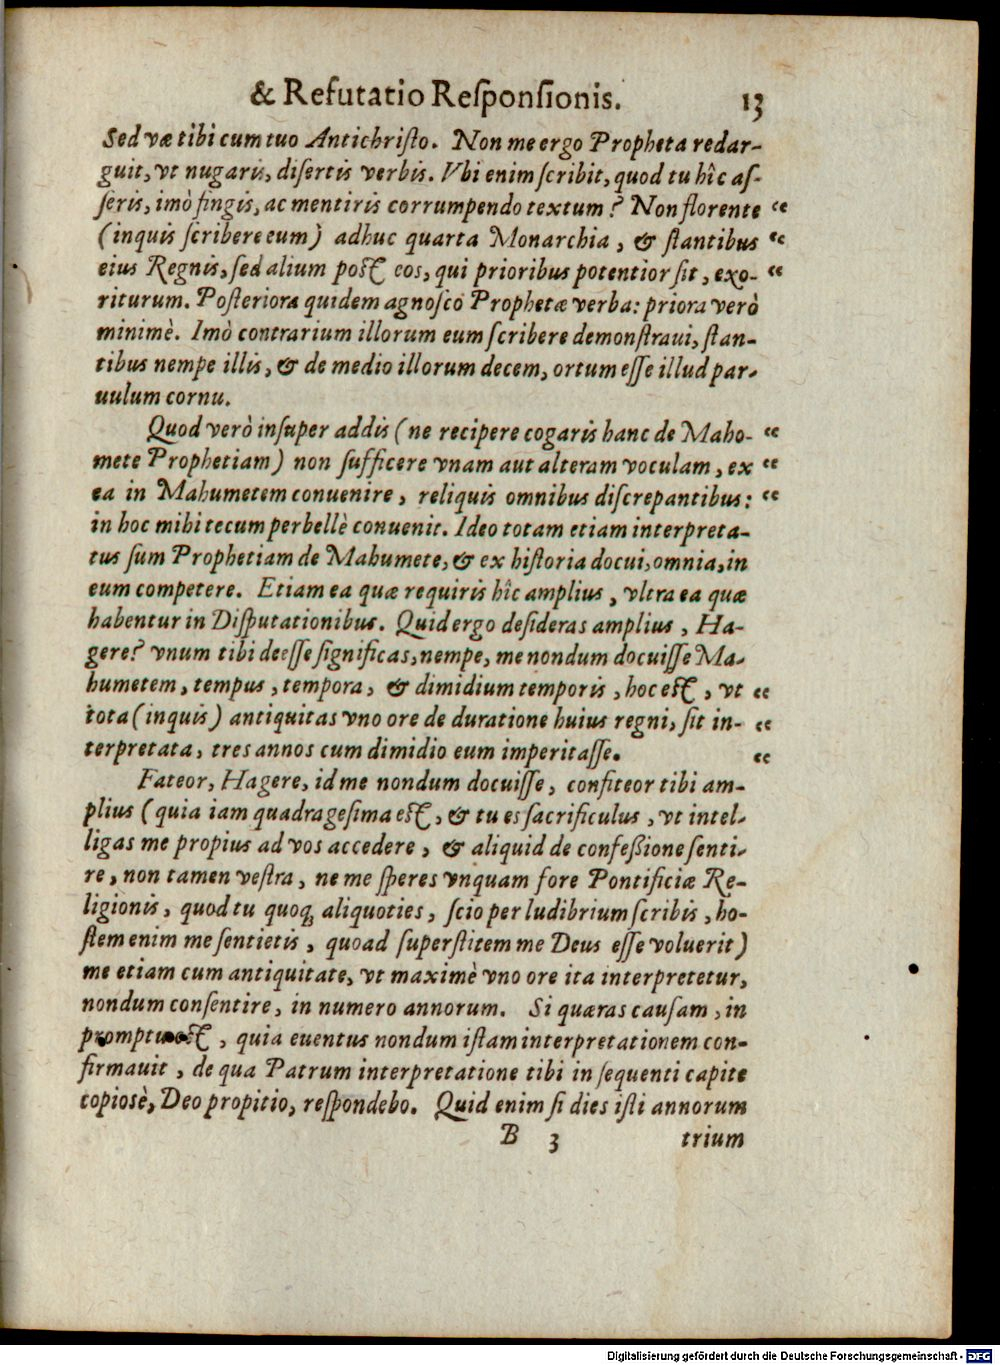 & Refutatio Reſponſionis. 13
Sed væ tibi cum tuo Antichriſto. Non me ergo Propheta redar-
guit, vt nugaris, diſertis verbis. Vbi enim ſcribit, quod tu hîc aſ-
ſeris, imò fingis, ac mentiris corrumpendo textum? Non florente “
(inquis ſcribere eum) adhuc quarta Monarchia, & ſtantibus “
eius Regnis, ſed alium poſt eos, qui prioribus potentior ſit, exo- “
riturum. Poſteriora quidem agnoſco Prophetæ verba: priora verò
minimè. Imò contrarium illorum eum ſcribere demonſtraui, ſtan-
tibus nempe illis, & de medio illorum decem, ortum eſſe illud par-
uulum cornu.
Quod verò inſuper addis (ne recipere cogaris hanc de Maho- “
mete Prophetiam) non ſufficere vnam aut alteram voculam, ex “
ea in Mahumetem conuenire, reliquis omnibus diſcrepantibus: “
in hoc mihi tecum perbellè conuenit. Ideo totam etiam interpreta-
tus ſum Prophetiam de Mahumete, & ex hiſtoria docui, omnia, in
eum competere. Etiam ea quæ requiris hîc amplius, vltra ea quæ
habentur in Diſputationibus. Quid ergo deſideras amplius, Ha-
gere? vnum tibi deeſſe ſignificas, nempe, me nondum docuiſſe Ma-
humetem, tempus, tempora, & dimidium temporis, hoc eſt, vt “
tota (inquis) antiquitas vno ore de duratione huius regni, ſit in- “
terpretata, tres annos cum dimidio eum imperitaſſe. “
Fateor, Hagere, id me nondum docuiſſe, confiteor tibi am-
plius (quia iam quadrageſima eſt, & tu es ſacrificulus, vt intel-
ligas me propius ad vos accedere, & aliquid de confeßione ſenti-
re, non tamen veſtra, ne me ſperes vnquam fore Pontificiæ Re-
ligionis, quod tu quoq; aliquoties, ſcio per ludibrium ſcribis, ho-
ſtem enim me ſentietis, quoad ſuperſtitem me Deus eſſe voluerit)
me etiam cum antiquitate, vt maximè vno ore ita interpretetur,
nondum conſentire, in numero annorum. Si quæras cauſam, in
promptu eſt, quia euentus nondum iſtam interpretationem con-
firmauit, de qua Patrum interpretatione tibi in ſequenti capite
copiosè, Deo propitio, reſpondebo. Quid enim ſi dies iſti annorum
B 3 trium
Digitalisierung gefördert durch die Deutsche Forschungsgemeinschaft - DFG